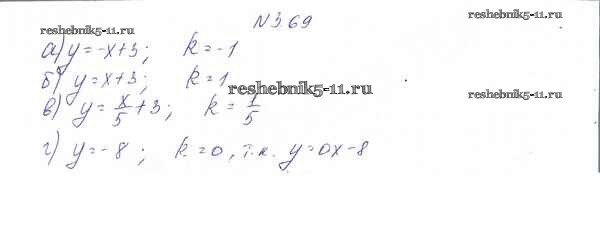 N 3.69
reshebnik5-11.ru
reshebnik5-11.ru
а) y = -x+3; k = -1
б) y = x+3; k = 1
reshebnik5-11.ru
reshebnik5-11.ru
в) y = x/5 + 3; k = 1/5
г) y = -8; k = 0, т.к. y = 0x - 8